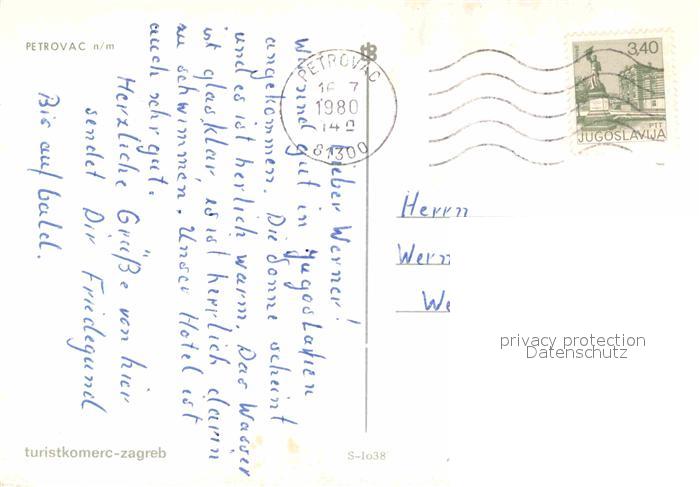 PETROVAC n/m
Lieber Werner!
Wir sind gut in Jugoslavien
angekommen. Die Sonne scheint
und es ist herlich warm. Das Wasser
ist glasklar, es ist herrlich darin
zu schwimmen. Unser Hotel ist
auch sehr gut.
Herzliche Grüße von hier
sendet Dir Friedegund
Bis auf bald.
turistkomerc-zagreb
S-1o38
PETROVAC
16 7
1980
14
81300
3,40
PTT
JUGOSLAVIJA
Herrn
Wern
We
privacy protection
Datenschutz